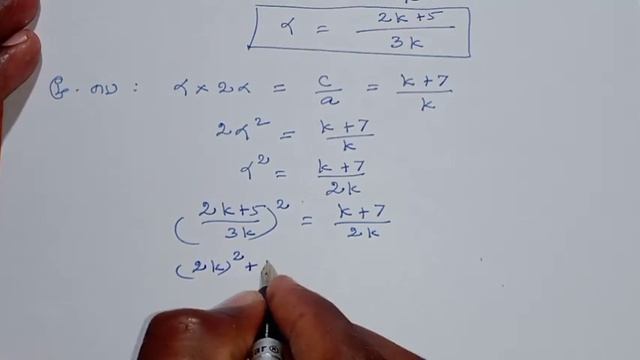 α = 2k+5 / 3k
α × 2α = c/a = k+7 / k
2α² = k+7 / k
α² = k+7 / 2k
(2k+5 / 3k)² = k+7 / 2k
(2k)² +